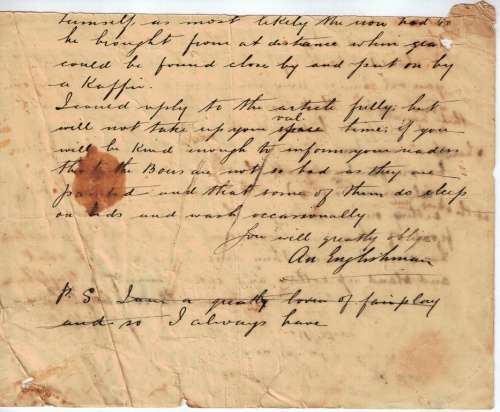 himself as most likely the iron had to
be brought from at distance while gear
could be found close by and put on by
a Kaffir.
I could reply to the article fully; but
will not take up your val. space time; if you
will be kind enough to inform your readers
that the Boers are not so bad as they are
painted and that some of them do sleep
on beds and wash occassonally
You will greatly oblige
An Englishman
P. S. I am a greatly lover of fairplay
and so I always have